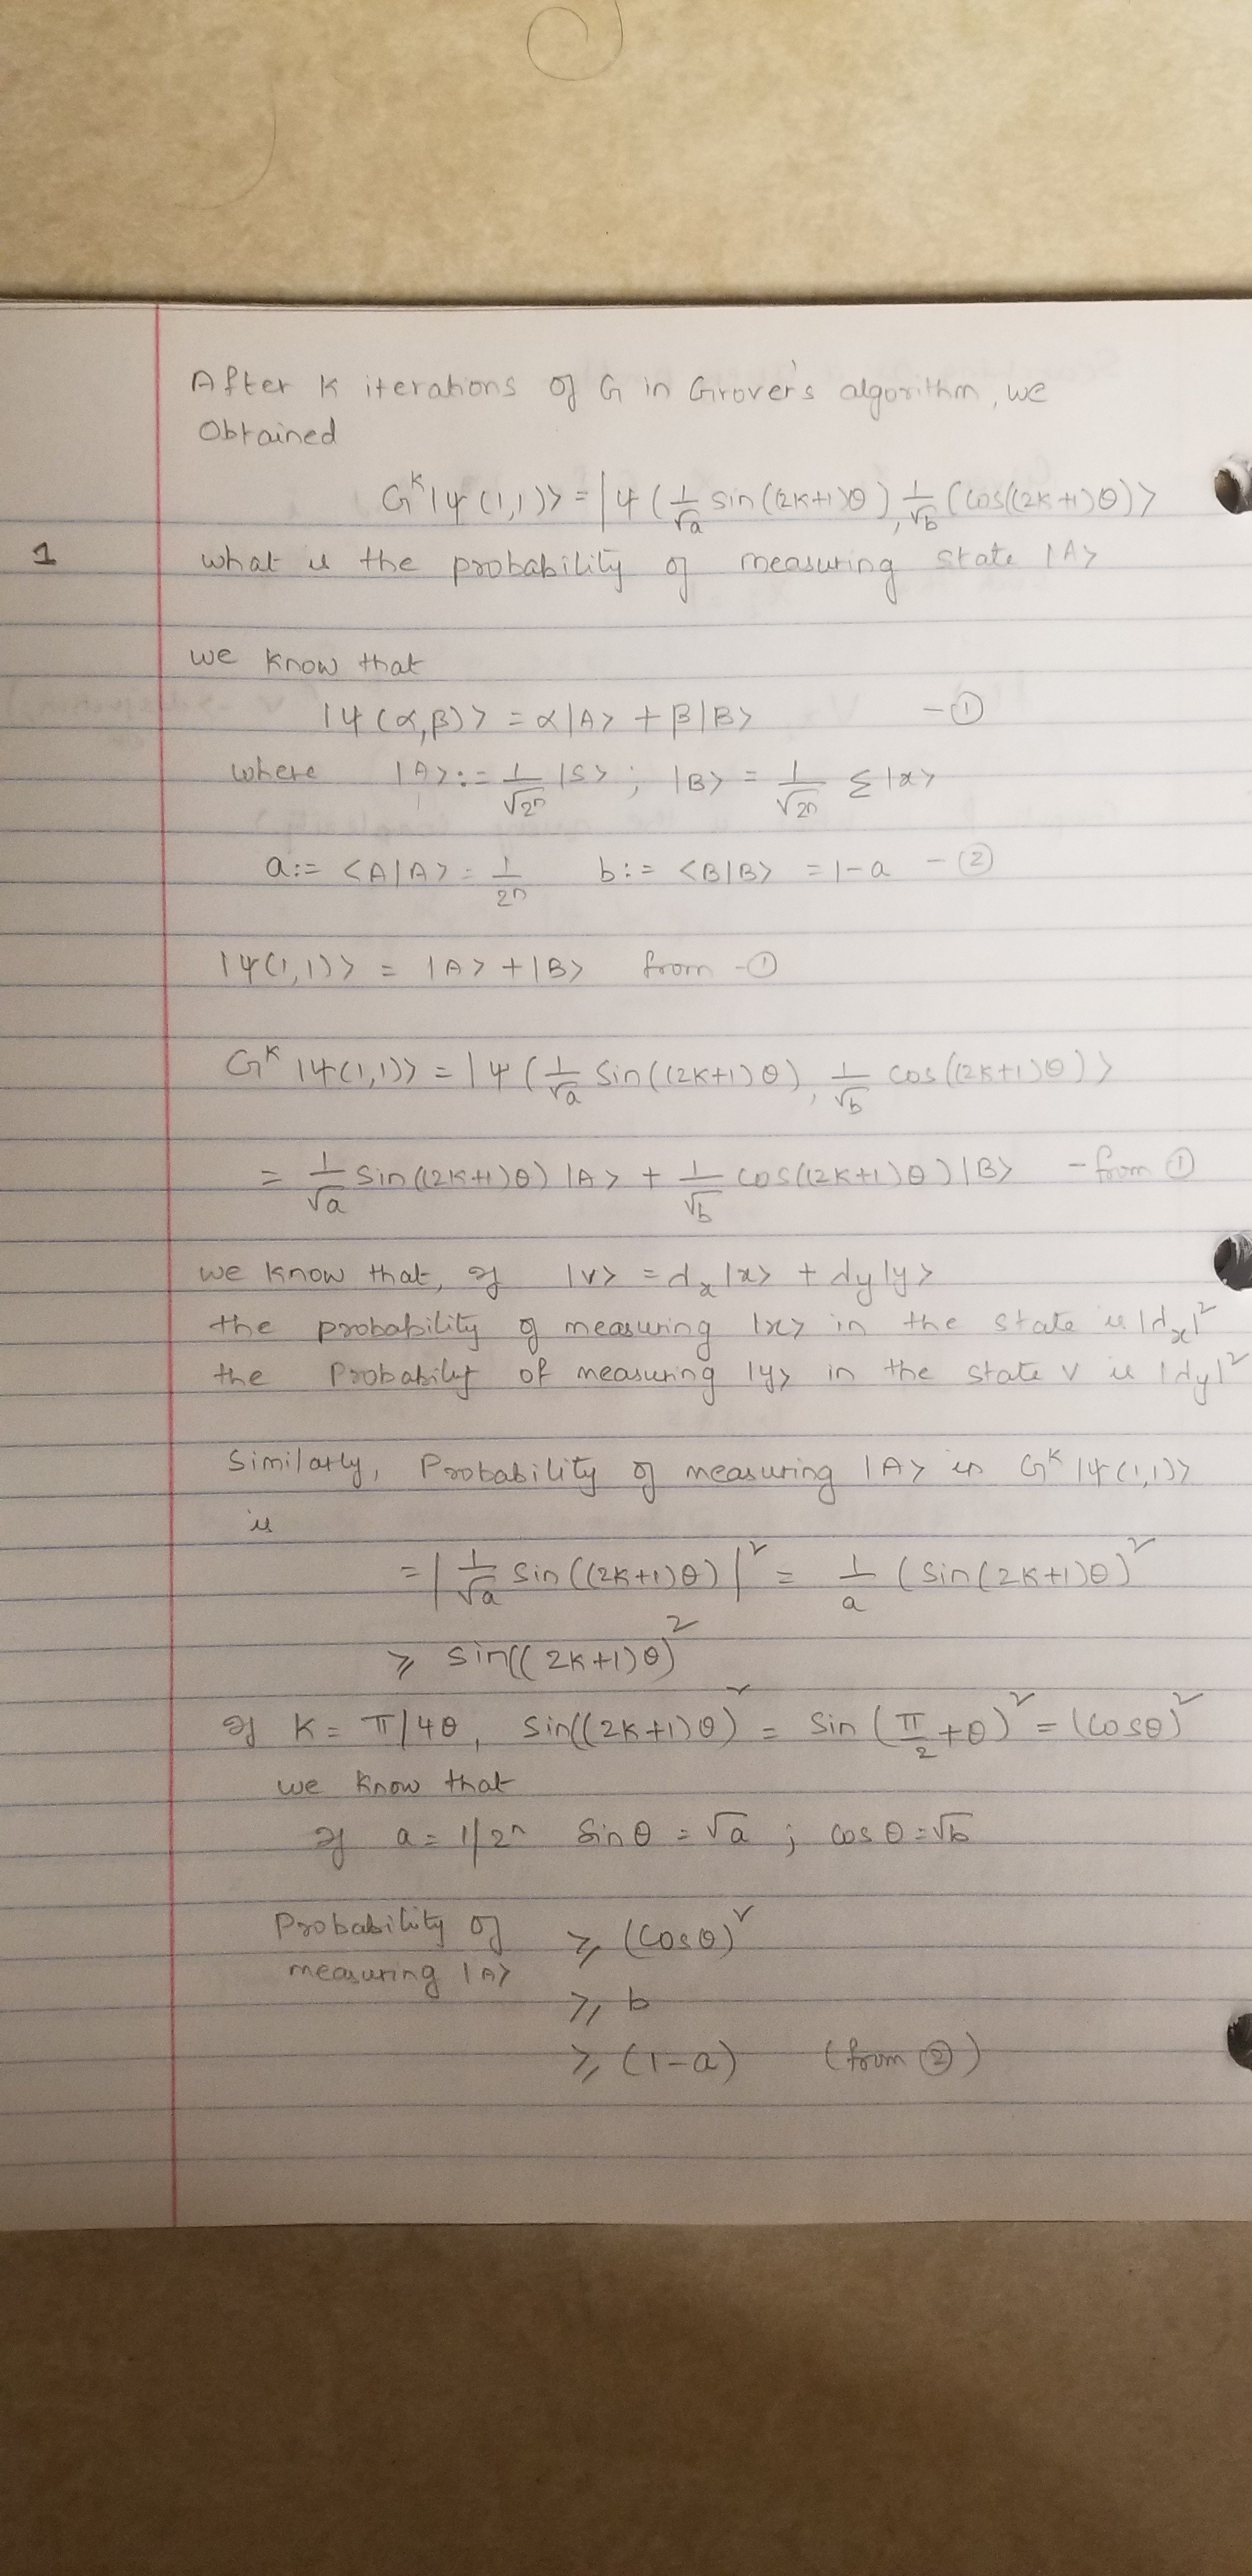 After K iterations of G in Grover's algorithm, we
Obtained
G^K |ψ(1,1)> = |ψ(1/√a sin((2K+1)θ), 1/√b (cos((2K+1)θ)>
1 what is the probability of measuring state |A>
we know that
|ψ(α,β)> = α|A> + β|B> - ①
where |A> := 1/√2^n |S> ; |B> = 1/√2^n Σ|x>
a := <A|A> = 1/2^n b := <B|B> = 1-a - ②
|ψ(1,1)> = |A> + |B> from - ①
G^K |ψ(1,1)> = |ψ(1/√a sin((2K+1)θ), 1/√b cos((2K+1)θ)>
= 1/√a sin((2K+1)θ) |A> + 1/√b cos((2K+1)θ) |B> - from ①
we know that, if |v> = d_x|x> + d_y|y>
the probability of measuring |x> in the state is |d_x|^2
the Probability of measuring |y> in the state v is |d_y|^2
Similarly, Probability of measuring |A> in G^K |ψ(1,1)>
is
= |1/√a sin((2K+1)θ)|^2 = 1/a (sin(2K+1)θ)^2
≥ sin((2K+1)θ)^2
if K = π/4θ, sin((2K+1)θ)^2 = sin(π/2 + θ)^2 = (cosθ)^2
we know that
if a = 1/2^n sinθ = √a ; cosθ = √b
Probability of ≥ (cosθ)^2
measuring |A>
≥ b
≥ (1-a) (from ②)